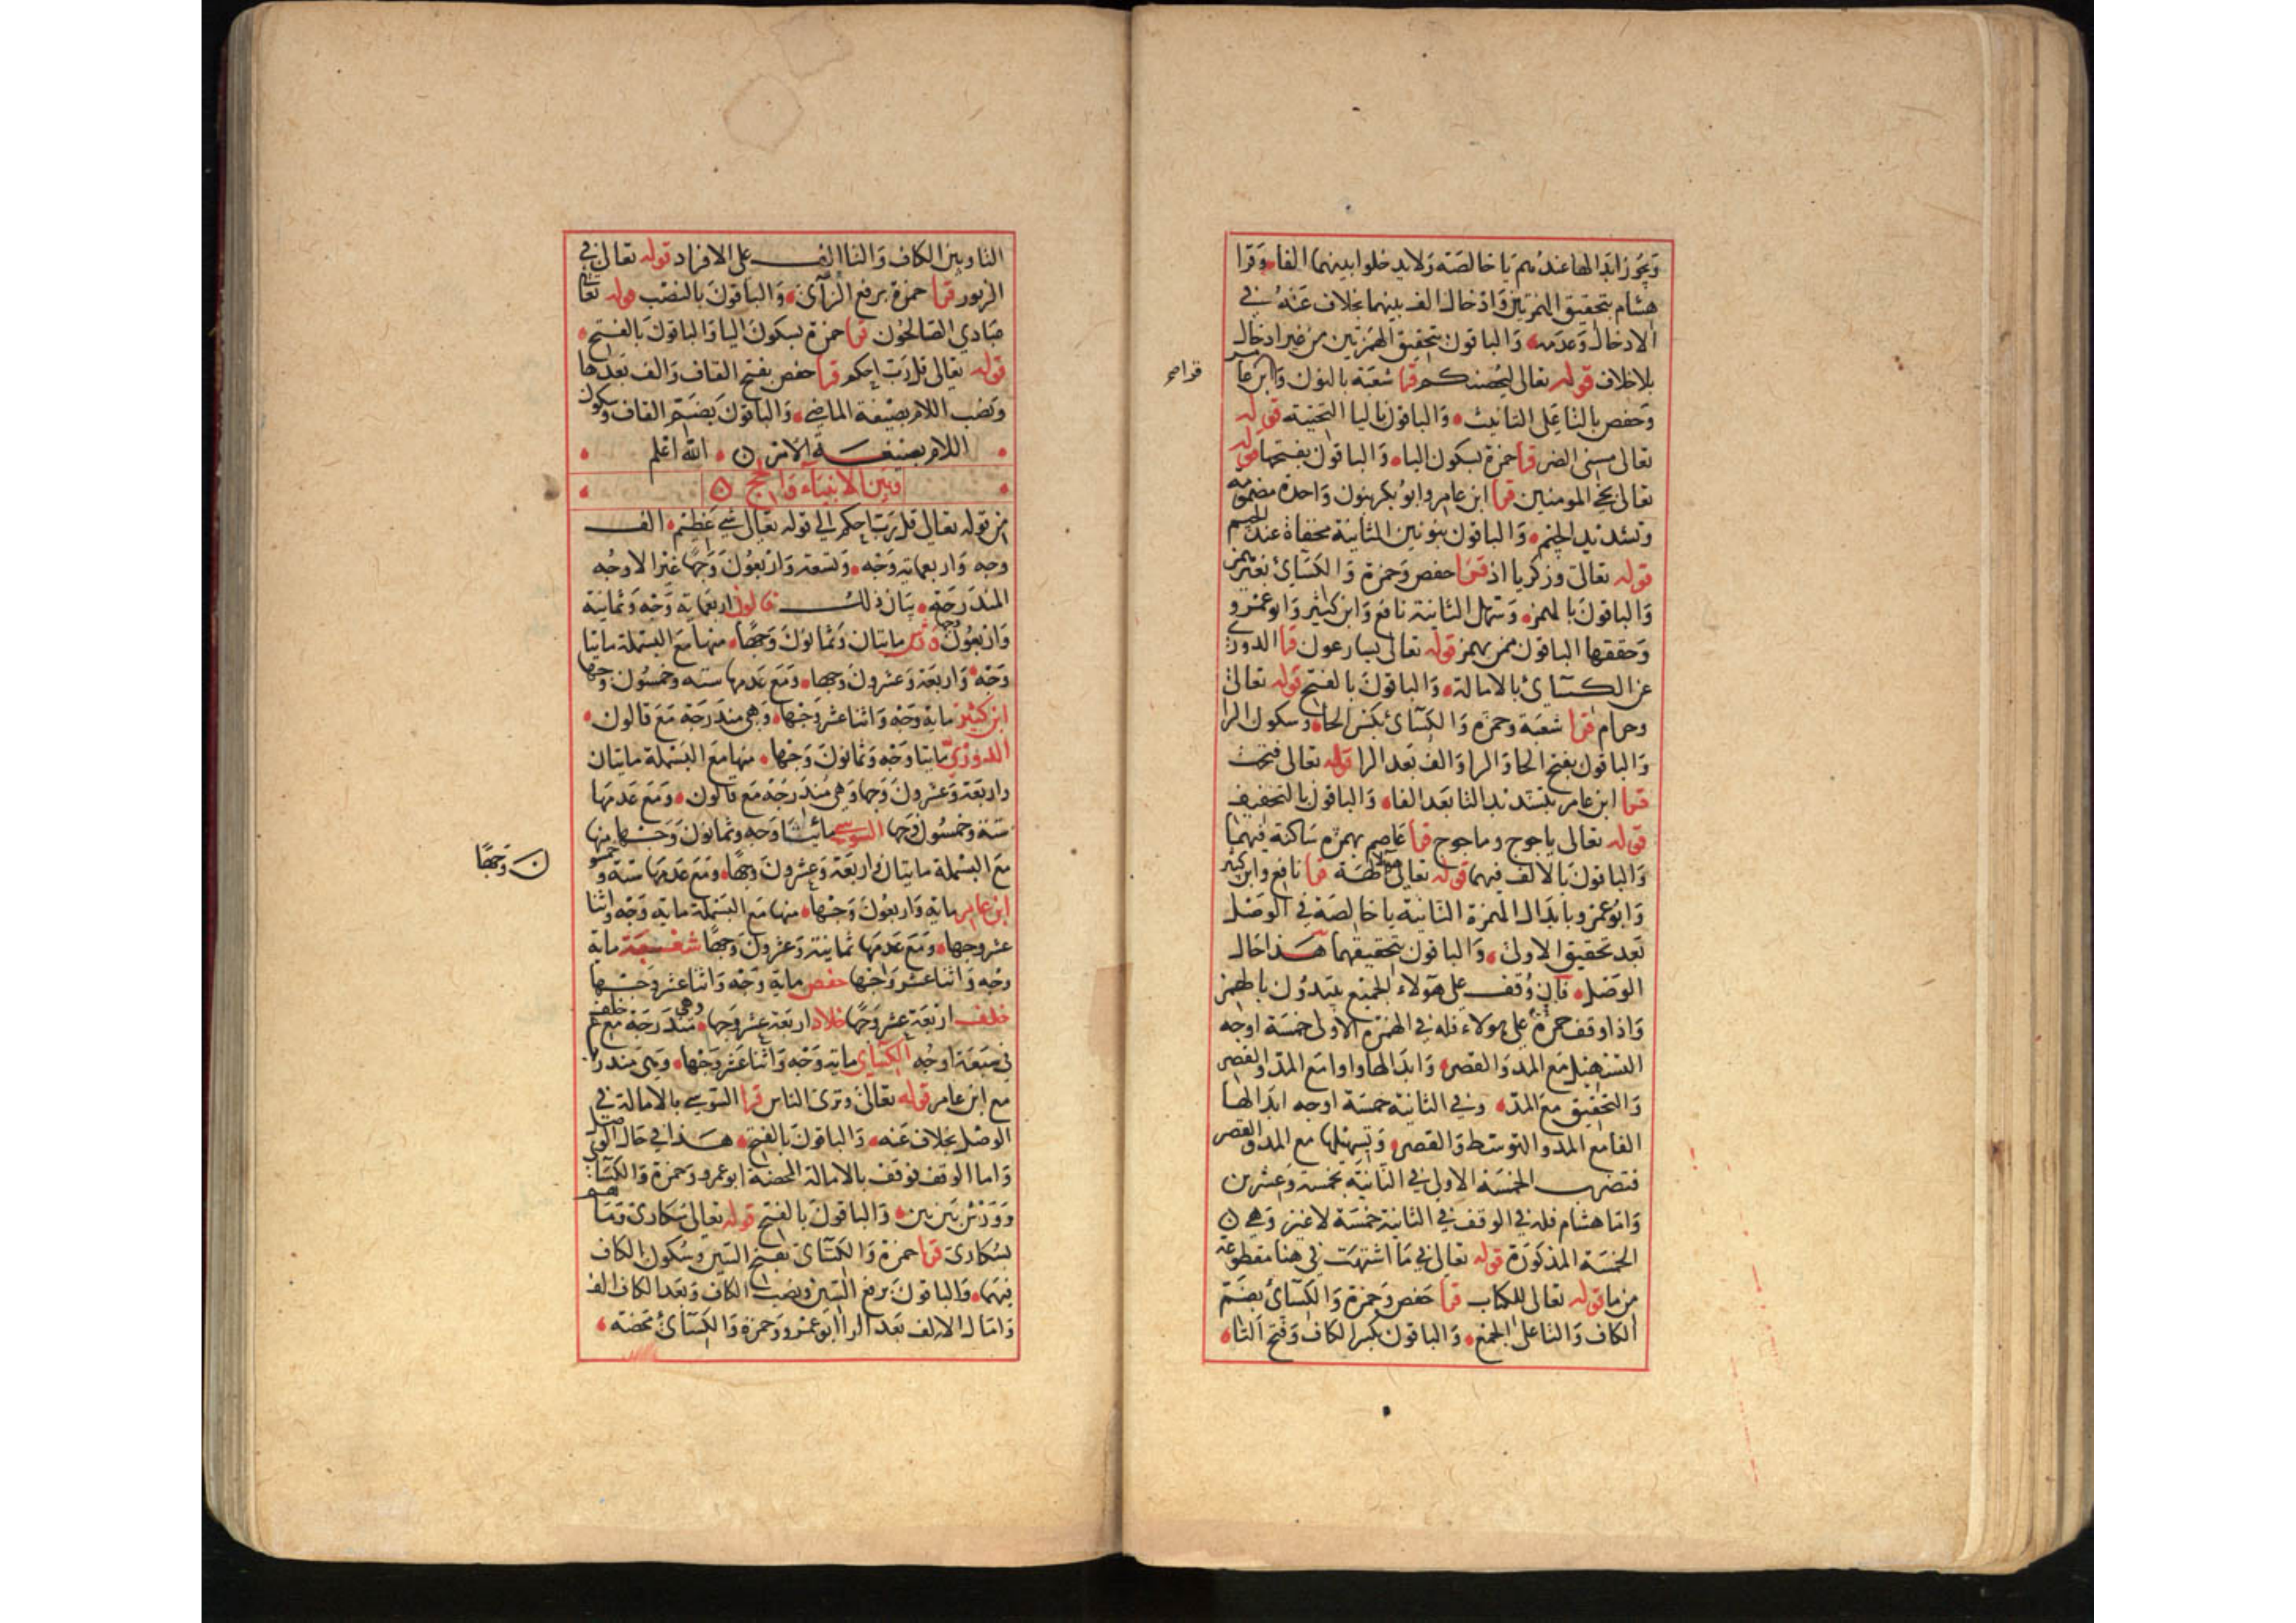 ويجوز ابدالها عندهم يا خالصة ولا يدخلوا بينهما الفا وقرا
هشام بتحقيق الهمزتين وادخال الف بينهما بخلاف عنه في
الادخال وعدمه والباقون بتحقيق الهمزتين من غير ادخال
بلا خلاف قوله تعالى لتحصنكم قرا شعبة بالنون وابن عامر
وحفص بالتا على التانيث والباقون باليا التحتية قوله
تعالى مسني الضر قرا حمزة بسكون اليا والباقون بفتحها قوله
تعالى نجي المومنين قرا ابن عامر وابو بكر بنون واحدة مضمومة
وتشديد الجيم والباقون بنونين الثانية مخفاة عند الجيم
قوله تعالى وزكريا اذ قرا حفص وحمزة والكسائ بغير همز
والباقون بالهمز وسهل الثانية نافع وابن كثير وابو عمرو
وحققها الباقون ممن يهمز قوله تعالى يسارعون قرا الدوري
عن الكسائ بالامالة والباقون بالفتح قوله تعالى
وحرام قرا شعبة وحمزة والكسائ بكسر الحا وسكون الرا
والباقون بفتح الحا والرا والف بعد الرا قوله تعالى فتحت
قرا ابن عامر بتشديد التا بعد الفا والباقون بالتخفيف
قوله تعالى ياجوج وماجوج قرا عاصم بهمزة ساكنة فيهما
والباقون بالالف فيهما قوله تعالى هولا الهة قرا نافع وابن كثير
وابو عمرو بابدال الهمزة الثانية يا خالصة في الوصل
بعد تحقيق الاولى والباقون بتحقيقهما هذا حال
الوصل فان وقف على هولاء الجميع يبتدون بالهمز
واذا وقف حمزة على هولاء فله في الهمزة الاولى خمسة اوجه
التسهيل مع المد والقصر وابدالها واوا مع المد والقصر
والتحقيق مع المد وفي الثانية خمسة اوجه ابدالها
الفا مع المد والتوسط والقصر وتسهيلها مع المد والقصر
فتضرب الخمسة الاولى في الثانية بخمسة وعشرين
واما هشام فله في الوقف في الثانية خمسة لا غير وهي
الخمسة المذكورة قوله تعالى في ما اشتهت في هنا مقطوعة
من ما قوله تعالى للكتاب قرا حفص وحمزة والكسائ بضم
الكاف والتا على الجمع والباقون بكسر الكاف وفتح التا
التا وبين الكاف والتا الف على الافراد قوله تعالى في
الزبور قرا حمزة برفع الزاى والباقون بالنصب قوله تعالى
عبادي الصالحون قرا حمزة بسكون اليا والباقون بالفتح
قوله تعالى قل رب احكم قرا حفص بفتح القاف والف بعدها
ونصب اللام بصيغة الماضي والباقون بضم القاف وسكون
اللام بصيغة الامر الله اعلم
وبين الانبياء والحج
من قوله تعالى قل رب احكم الي قوله تعالى شي عظيم الف
وجه واربعماية وجه وتسعة واربعون وجها غير الاوجه
المندرجة بيان ذلك قالون اربعماية وجه وثمانية
واربعون وجها ورش مايتان وثمانون وجها منها مع البسملة مايتا
وجه واربعة وعشرون وجها ومع عدمها ستة وخمسون وجها
ابن كثير ماية وجه واثنا عشر وجها وهي مندرجة مع قالون
الدوري مايتا وجه وثمانون وجها منها مع البسملة مايتان
واربعة وعشرون وجها وهي مندرجة مع قالون ومع عدمها
ستة وخمسون وجها السوسي مائتا وجه وثمانون وجها منها
مع البسملة مايتان واربعة وعشرون وجها ومع عدمها ستة وخمسو
ن وجها
ابن عامر ماية واربعون وجها منها مع البسملة ماية وجه واثنا
عشر وجها ومع عدمها ثمانية وعشرون وجها شعبة ماية
وجه واثنا عشر وجها حفص ماية وجه واثنا عشر وجها
خلف اربعة عشر وجها خلاد اربعة عشر وجها وهي مندرجة مع خلف
في سبعة اوجه الكسائ ماية وجه واثنا عشر وجها وهي مندرجة
مع ابن عامر قوله تعالى وترى الناس قرا السوسي بالامالة في
الوصل بخلاف عنه والباقون بالفتح هذا في حال الوصل
واما الوقف فوقف بالامالة المحضة ابو عمرو وحمزة والكسائ
وورش بين بين والباقون بالفتح قوله تعالى سكارى وما هم
بسكارى قرا حمزة والكسائ بفتح السين وسكون الكاف
فيهما والباقون برفع السين ونصب الكاف وبعد الكاف الف
وامال الالف بعد الرا ابو عمرو وحمزة والكسائ محضة